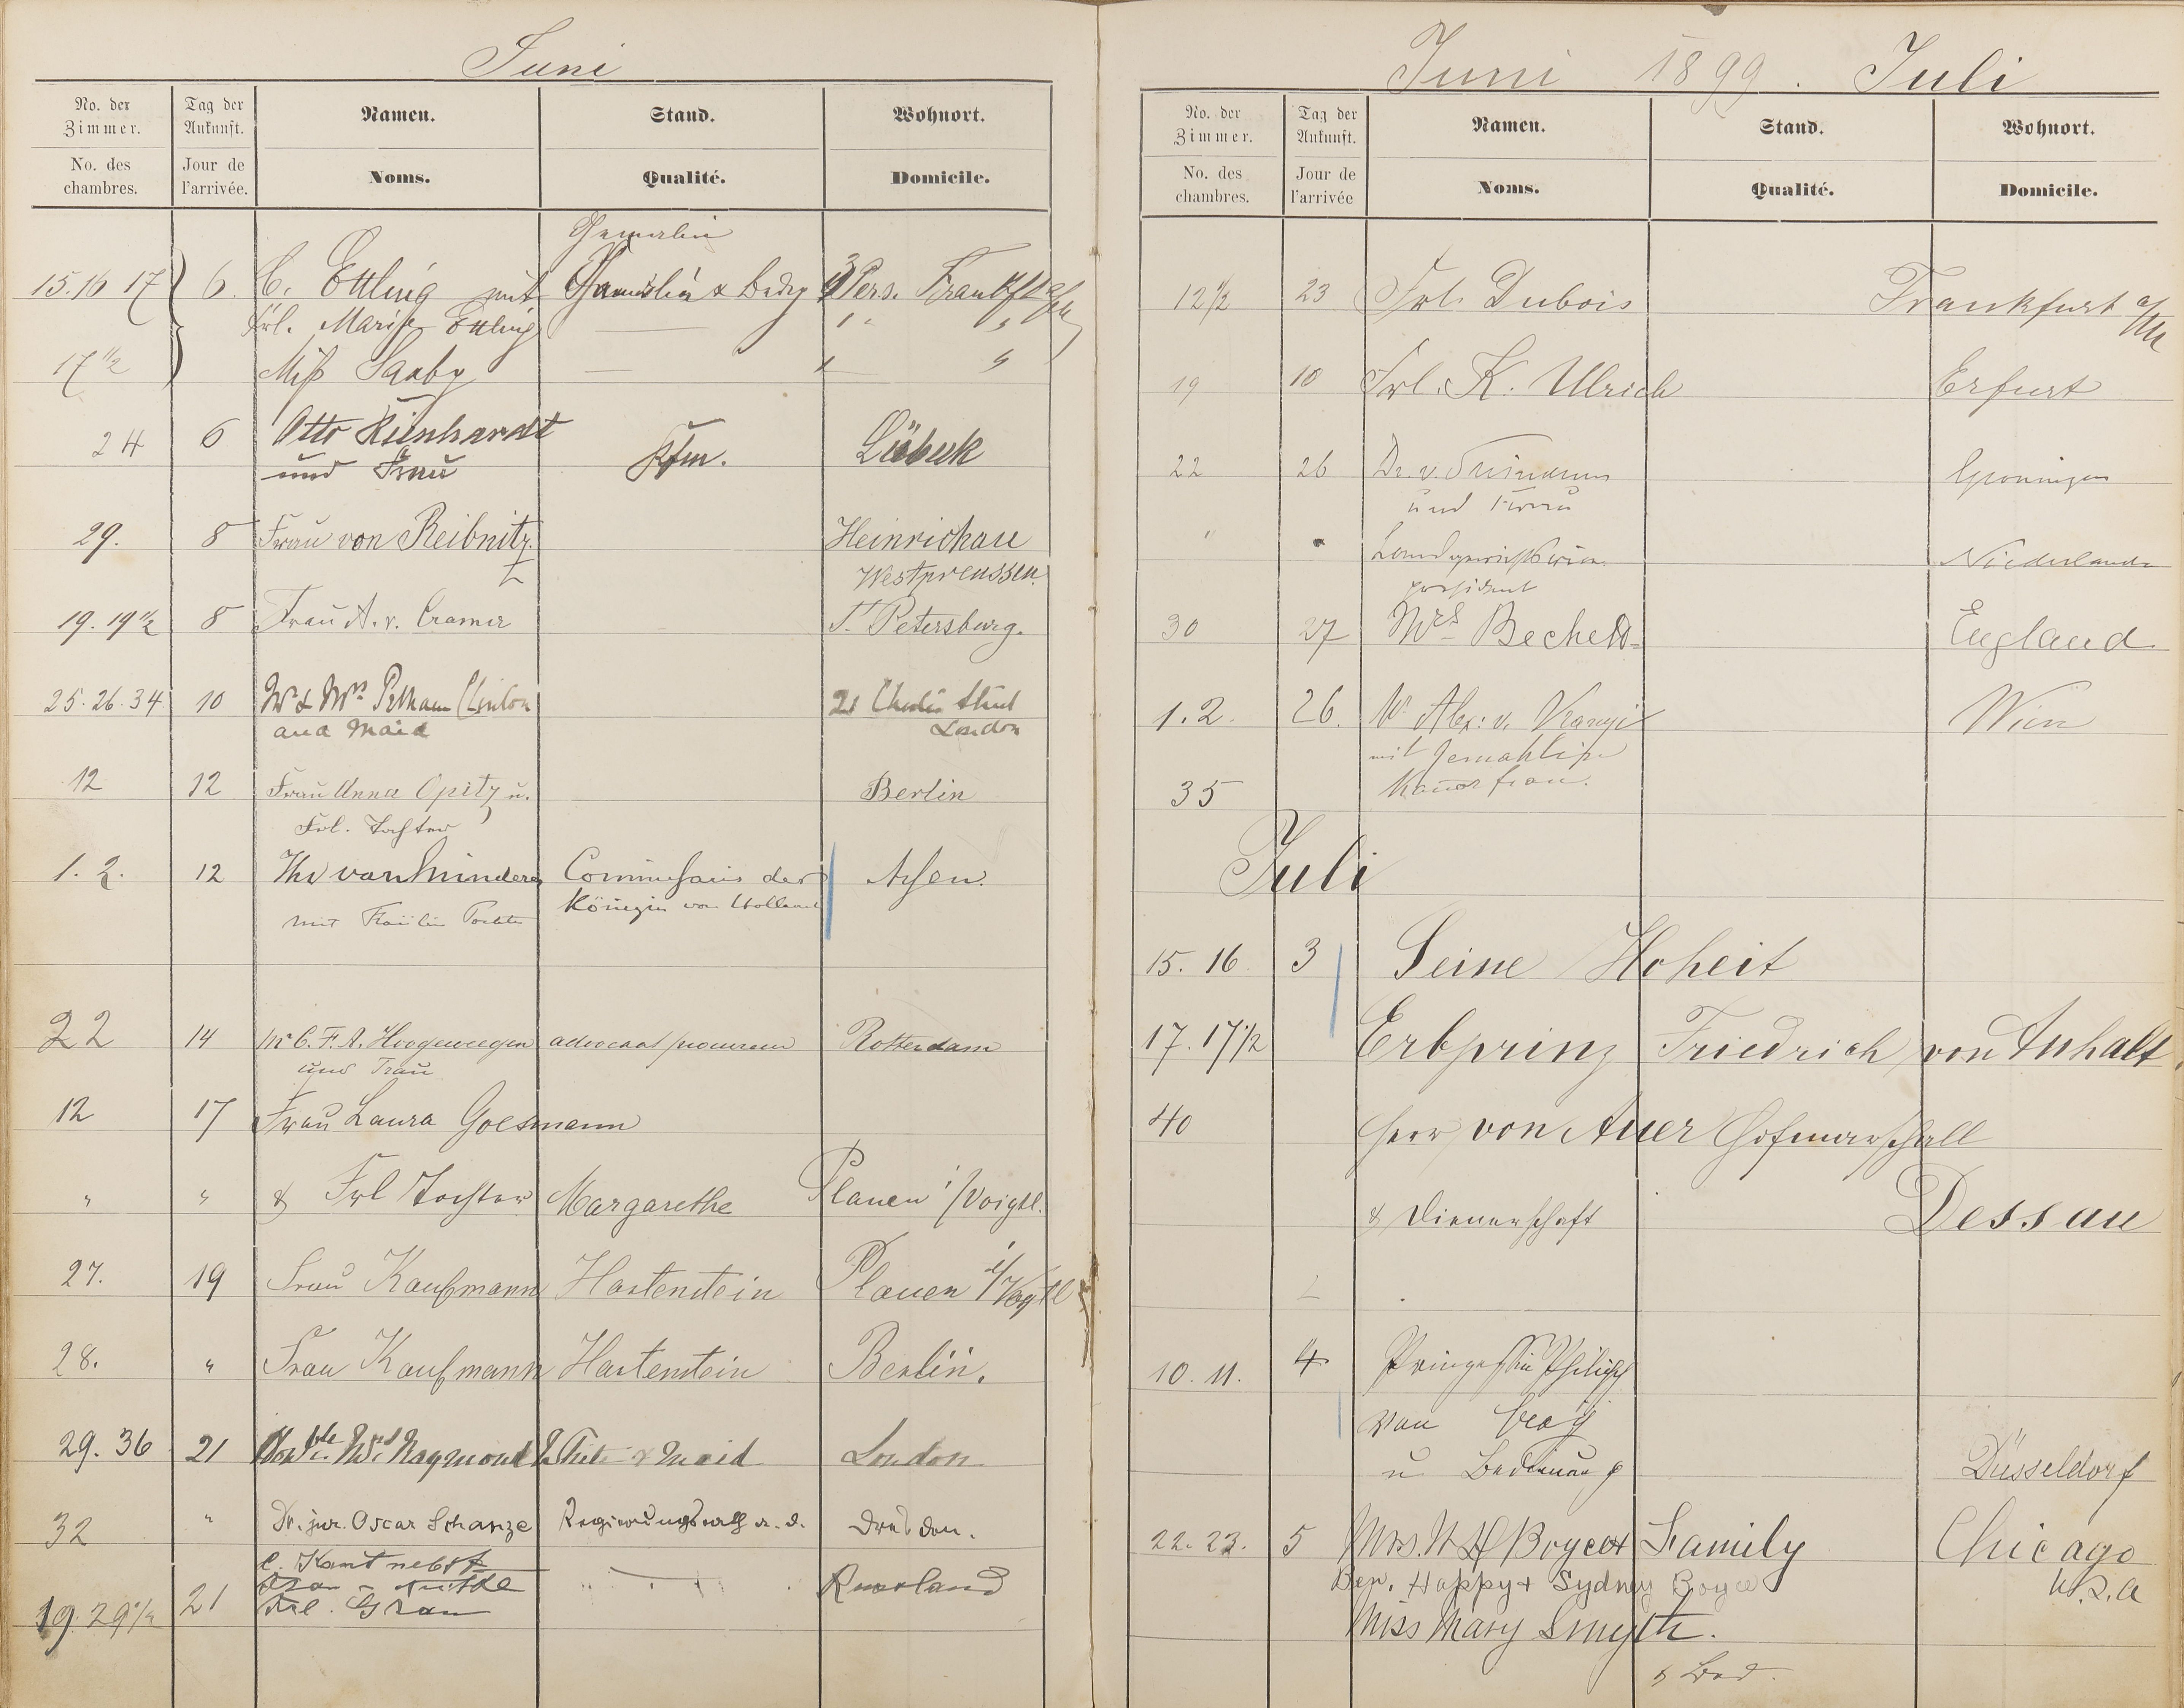 Juni
No. der Zimmer. Tag der Ankunft. Namen. Stand. Wohnort.
No. des chambres. Jour de l'arrivée. Noms. Qualité. Domicile.
Gemalin
15. 16 17 6. C. Ettling mit 3 Pers. Frankft a/M
Frl. Marie Ettling 1 "
17 1/2 Miß Saaby 1 "
24 6 Otto Rienhardt Kfm. Lübeck
und Frau
29. 8 Frau von Reibnitz Heinrichau
Westpreussen.
19. 19 1/2 8 Frau A. v. Cramer St. Petersburg.
25. 26. 34 10 Mr & Mrs Pelham Clinton 21 Chester Street
and Maid London
12 12 Frau Anna Opitz u. Berlin
Frl. Tochter
1. 2. 12 Commissaris der Assen.
mit Fräulein Tochter Königin von Holland
22 14 Mr C. F. A. Hoogeweegen advocaat procureur Rotterdam
und Frau
12 17 Frau Laura Goesmann
" " & Frl Tochter Margarethe Plauen i/Voigtl.
27. 19 Frau Kaufmann Hartenstein Plauen i/Vogtl
28. " Frau Kaufmann Hartenstein Berlin.
29. 36 21 Honble Mrs Raymond & Maid London
32 " Dr. jur. Oscar Schanze Regierungsrath a. D. Dresden.
C. Kant nebst
19. 29 1/2 21 Russland
Juni 1899. Juli
No. der Zimmer. Tag der Ankunft. Namen. Stand. Wohnort.
No. des chambres. Jour de l'arrivée Noms. Qualité. Domicile.
12 1/2 23 Frl. Dubois Frankfurt a/M
19 10 Frl. K. Ulrich Erfurt
22 26 Dr. v. Groningen
und Frau
" Niederlande
präsident
30 27 Mrs Beckett England
1. 2. 26. Alex: v. Wien
mit Gemahlin
35 Kammerfrau.
Juli
15. 16. 3 Seine Hoheit
17. 17 1/2 Erbprinz Friedrich von Anhalt
40 Herr von Auer Hofmarschall
& Dienerschaft Dessau
10. 11. 4 Prinzessin Philipp
von Croÿ
u Bedienung Düsseldorf
22. 23. 5 Mrs. W D Boyce & Family Chicago
Ben, Happy + Sydney Boyce U.S.A
Miss Mary Smyth.
& Bed.